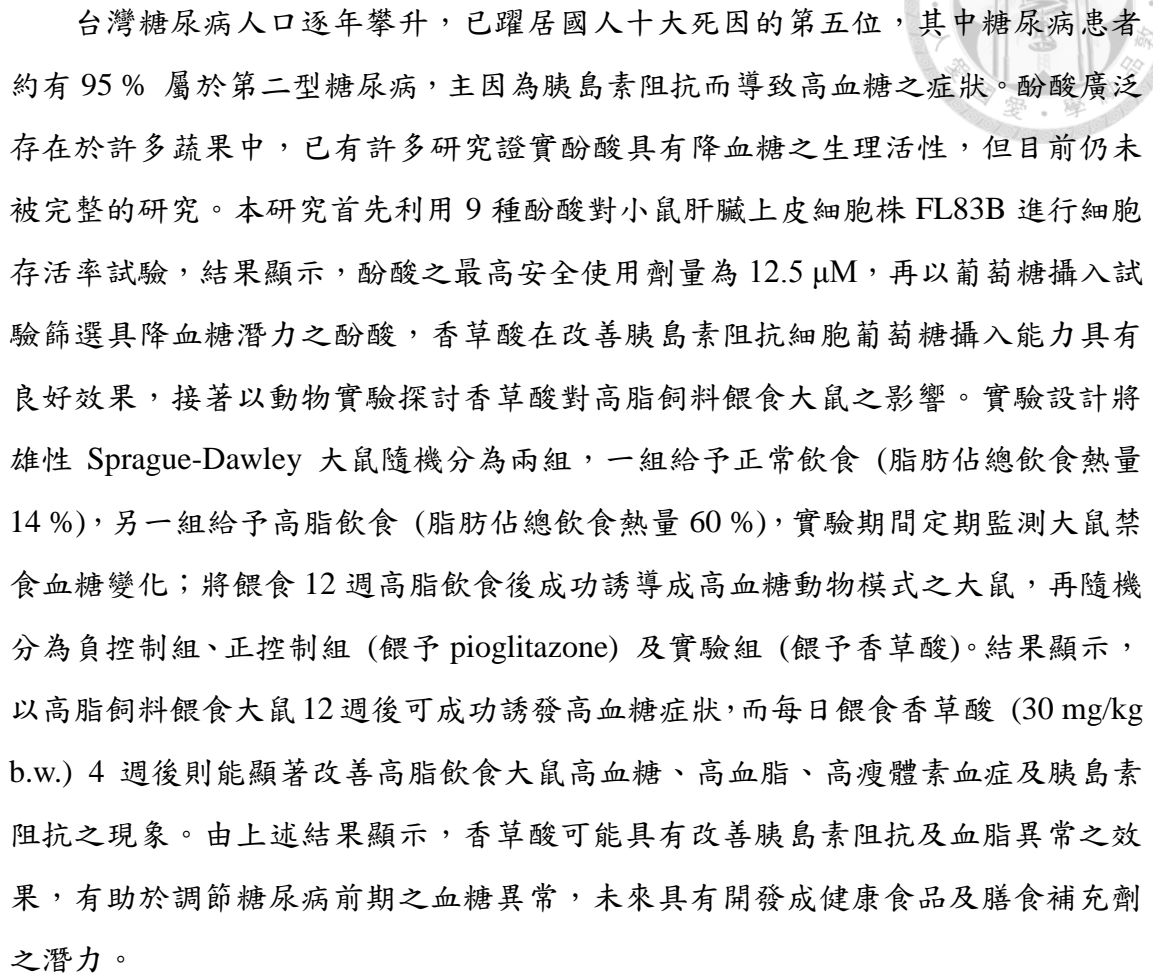 台灣糖尿病人口逐年攀升，已躍居國人十大死因的第五位，其中糖尿病患者
約有 95 % 屬於第二型糖尿病，主因為胰島素阻抗而導致高血糖之症狀。酚酸廣泛
存在於許多蔬果中，已有許多研究證實酚酸具有降血糖之生理活性，但目前仍未
被完整的研究。本研究首先利用 9 種酚酸對小鼠肝臟上皮細胞株 FL83B 進行細胞
存活率試驗，結果顯示，酚酸之最高安全使用劑量為 12.5 μM，再以葡萄糖攝入試
驗篩選具降血糖潛力之酚酸，香草酸在改善胰島素阻抗細胞葡萄糖攝入能力具有
良好效果，接著以動物實驗探討香草酸對高脂飼料餵食大鼠之影響。實驗設計將
雄性 Sprague-Dawley 大鼠隨機分為兩組，一組給予正常飲食 (脂肪佔總飲食熱量
14 %)，另一組給予高脂飲食 (脂肪佔總飲食熱量 60 %)，實驗期間定期監測大鼠禁
食血糖變化；將餵食 12 週高脂飲食後成功誘導成高血糖動物模式之大鼠，再隨機
分為負控制組、正控制組 (餵予 pioglitazone) 及實驗組 (餵予香草酸)。結果顯示，
以高脂飼料餵食大鼠 12 週後可成功誘發高血糖症狀，而每日餵食香草酸 (30 mg/kg
b.w.) 4 週後則能顯著改善高脂飲食大鼠高血糖、高血脂、高瘦體素血症及胰島素
阻抗之現象。由上述結果顯示，香草酸可能具有改善胰島素阻抗及血脂異常之效
果，有助於調節糖尿病前期之血糖異常，未來具有開發成健康食品及膳食補充劑
之潛力。